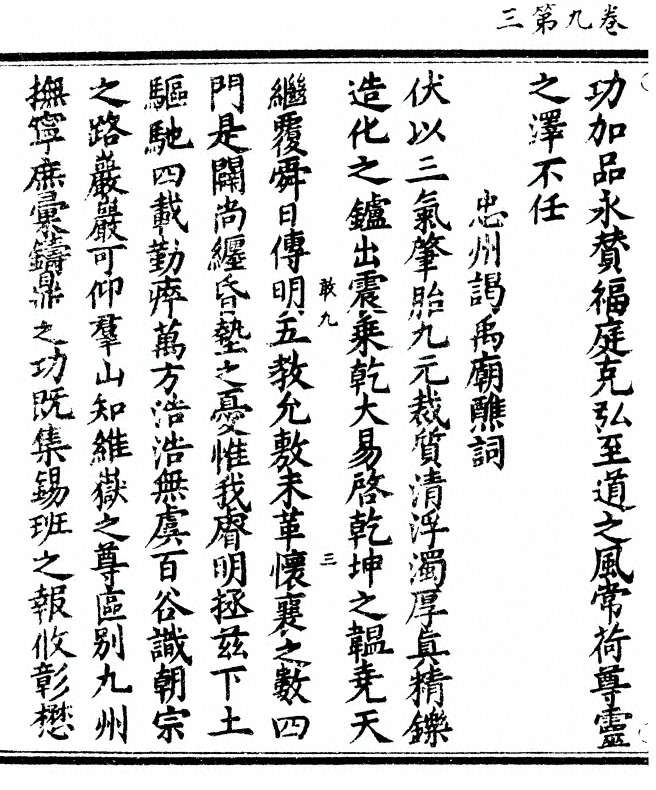 三第九卷
功加品永贊福庭克弘至道之風常荷尊靈
之澤不任
忠州謁禹廟醮詞
伏以三氣肇胎九元裁質清浮濁厚真精鑠
造化之鑪出震乘乾大易啓乾坤之韞堯天
敢九
三
繼覆舜日傳明五教允敷未革懷襄之數四
門是闢尚纏昏墊之憂惟我睿明拯茲下土
驅馳四載勤瘁萬方浩浩無虞百谷識朝宗
之路巖巖可仰羣山知維嶽之尊區別九州
撫寧庶彙鑄鼎之功既集錫班之報攸彰懋